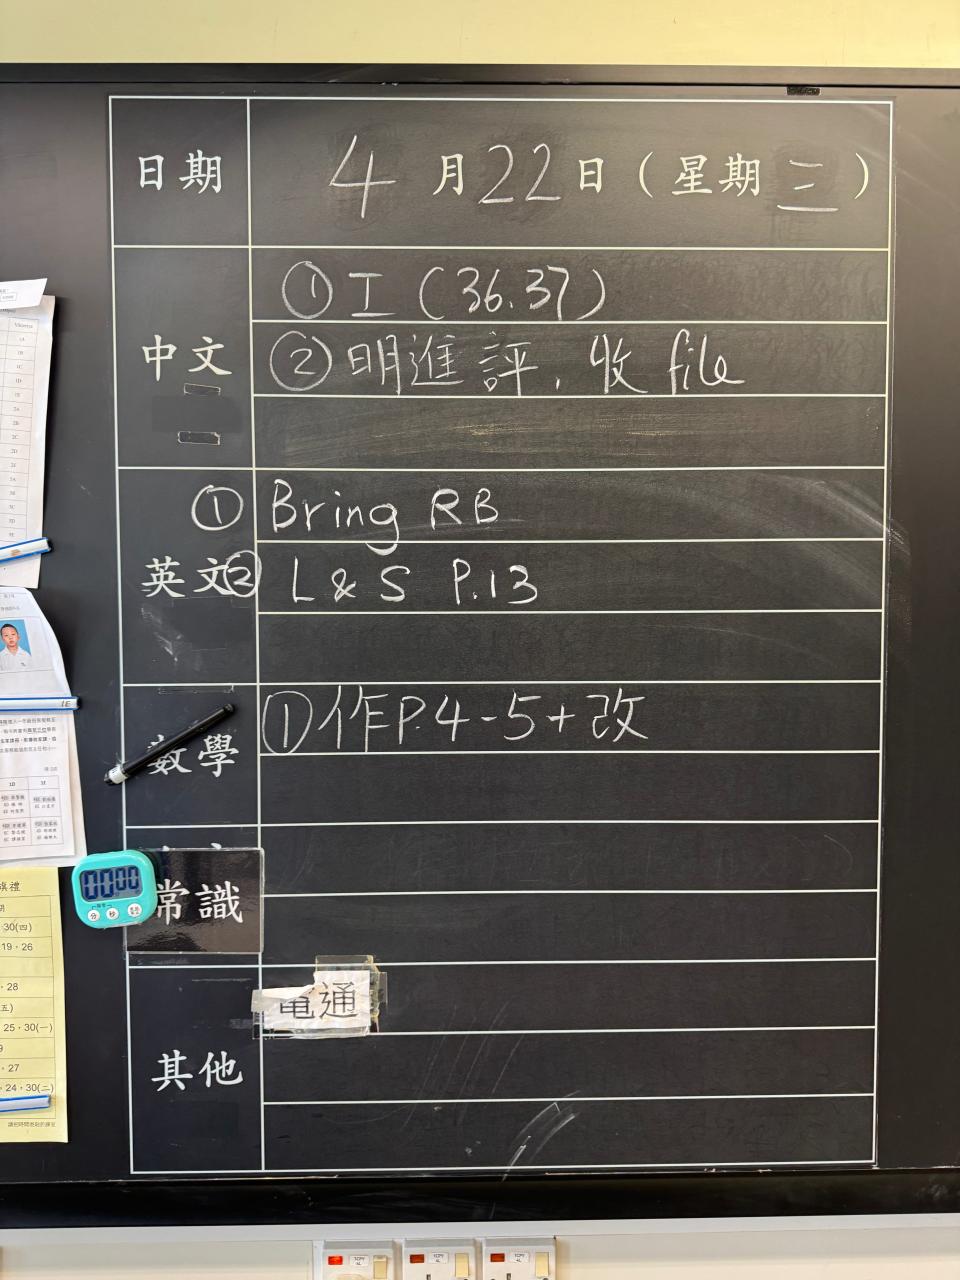 日期 4月22日（星期三）
中文
①工（36.37）
②明進評，收 file
英文
① Bring RB
② L & S P.13
數學
①作P.4-5+改
00 00
分 秒
常識
電通
其他
1E
30(四)
19，26
28
25，30(一)
27
24，30(二)